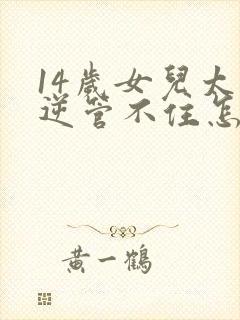 14歲女兒大
逆管不住怎
黃一鶴